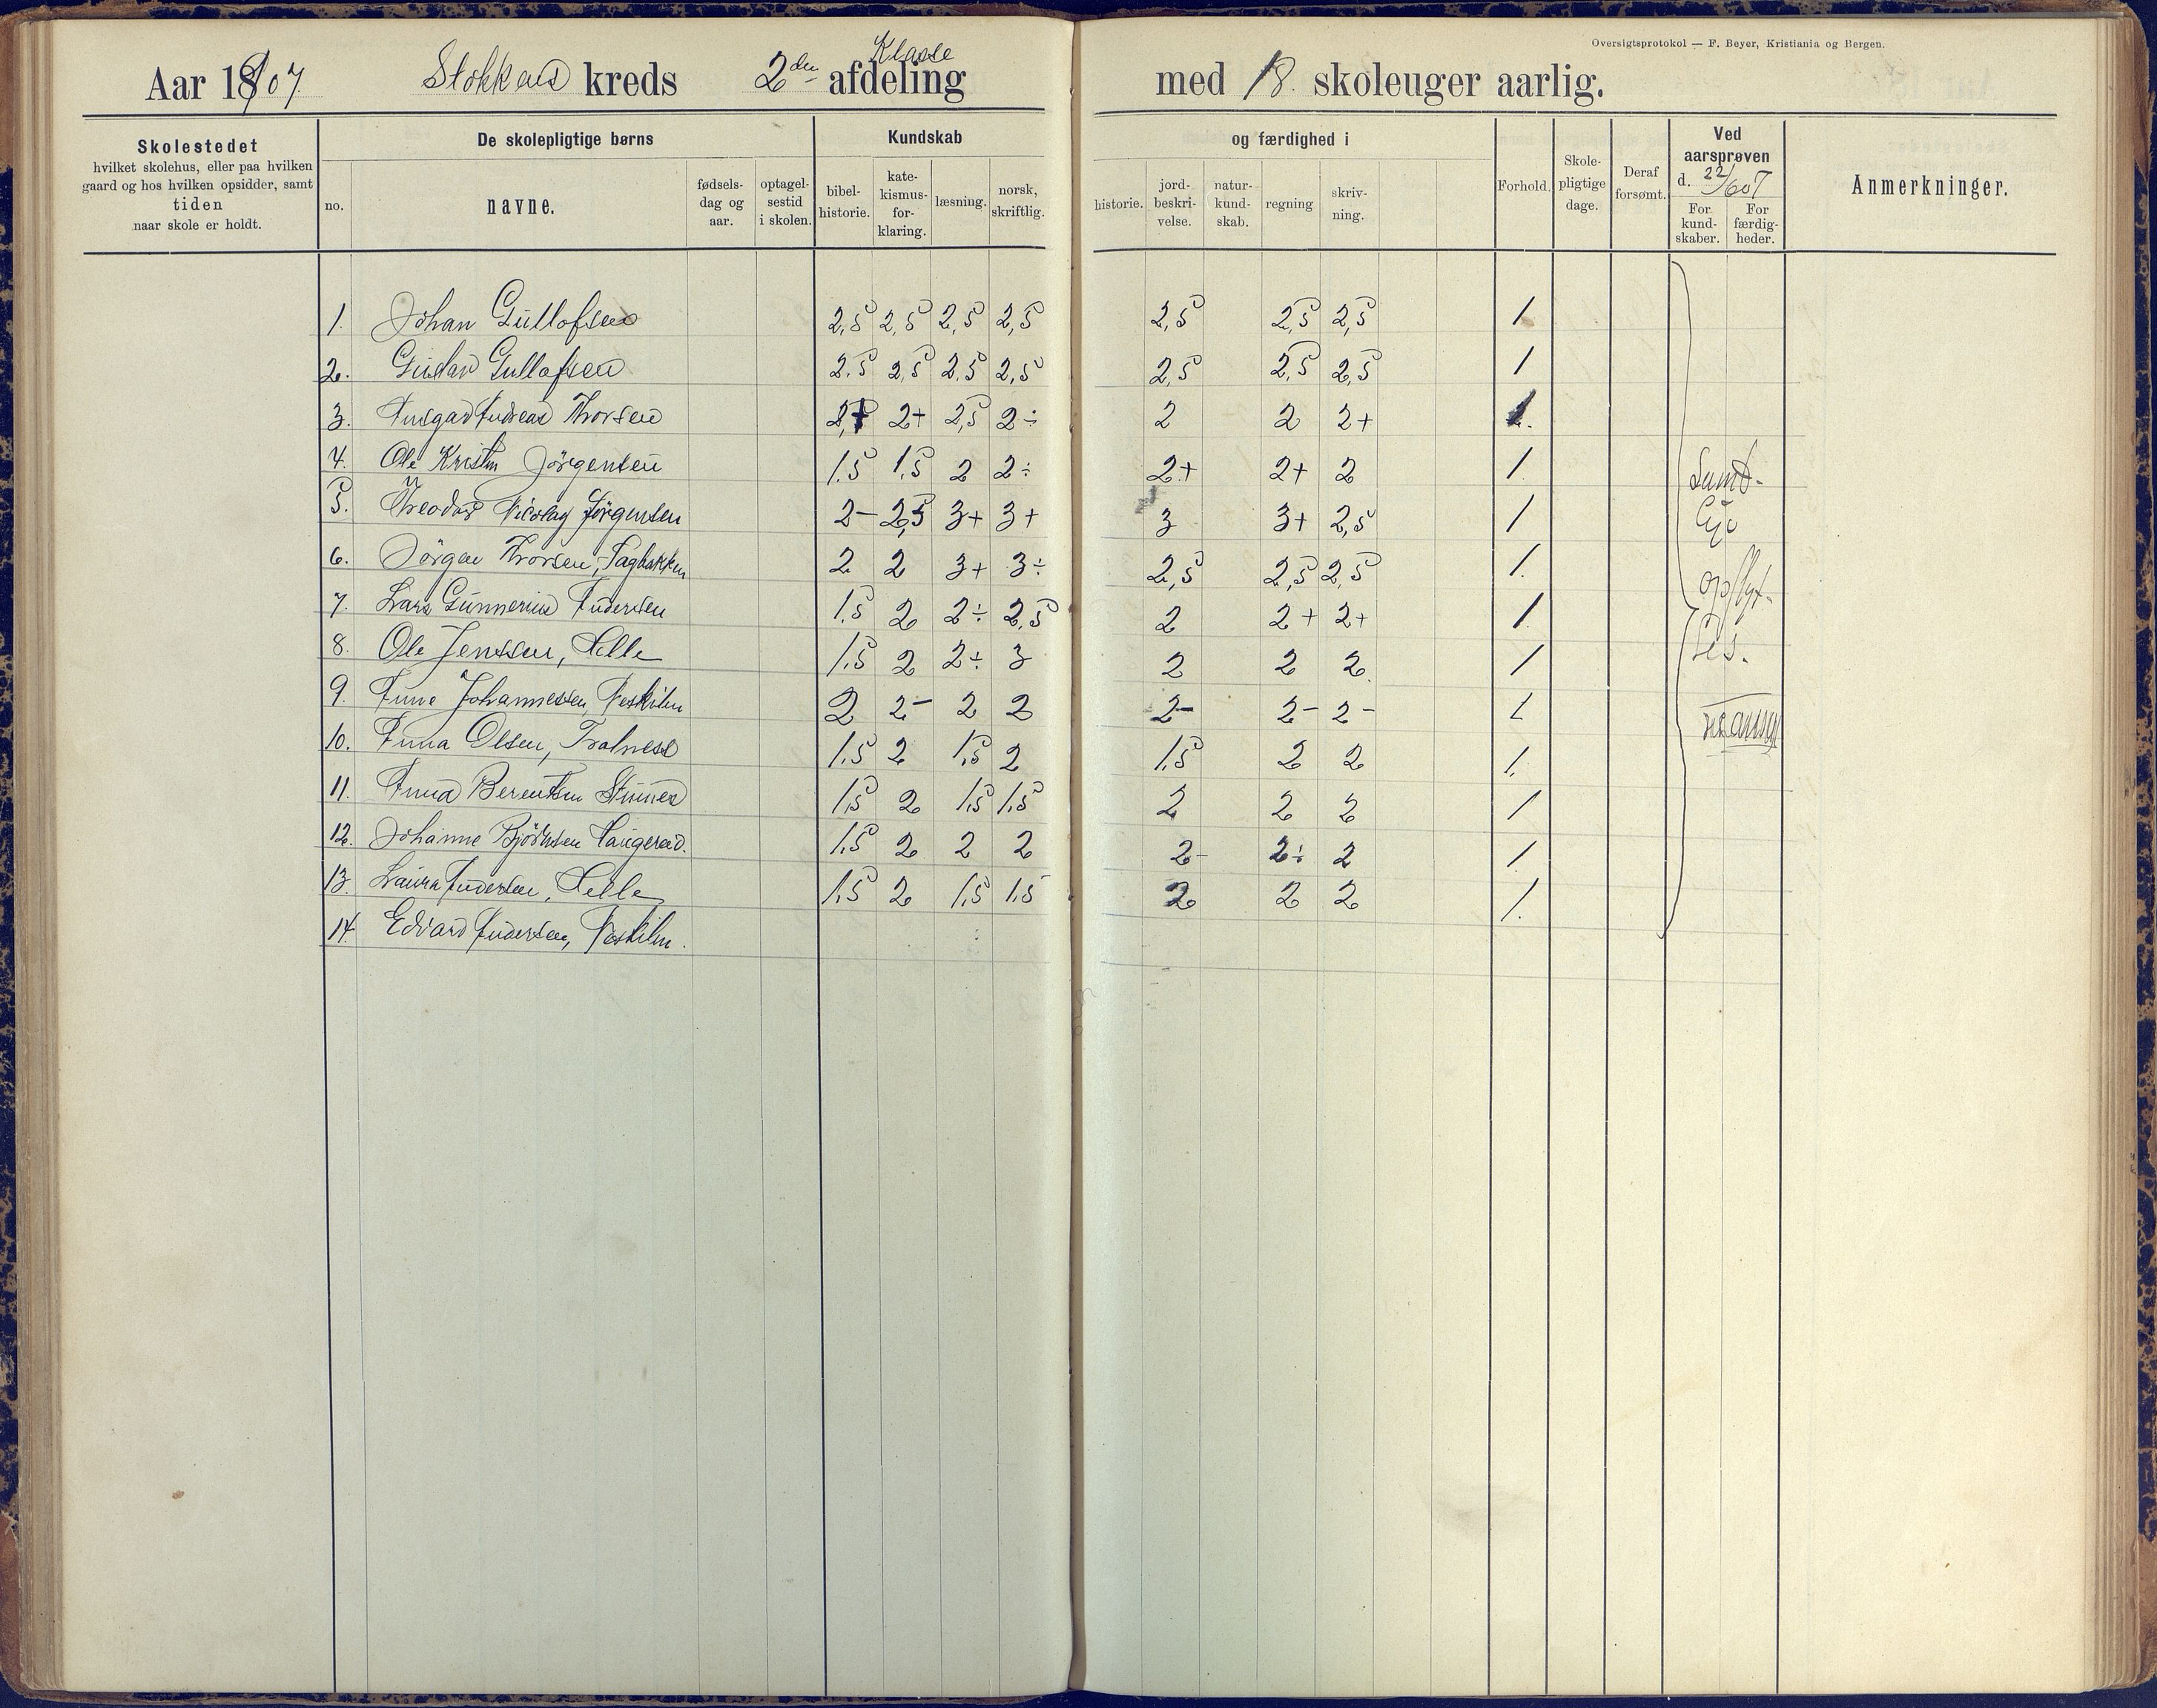 Oversigtsprotokol — F. Beyer, Kristiania og Bergen.
Aar 1907 Stokken kreds 2den Klasse afdeling med 18 skoleuger aarlig.
Skolestedet
hvilket skolehus, eller paa hvilken
gaard og hos hvilken opsidder, samt
tiden
naar skole er holdt.
De skolepligtige børns
no. navne. fødsels-dag og aar. optagel-sestid i skolen.
Kundskab og færdighed i
bibel-historie. kate-kismus-for-klaring. læsning. norsk, skriftlig. historie. jord-beskri-velse. natur-kund-skab. regning skriv-ning.
Forhold. Skole-pligtige dage. Deraf forsømt.
Ved aarsprøven d. 22/6 07
For kund-skaber. For færdig-heder.
Anmerkninger.
1. Johan Gullofsen 2,5 2,5 2,5 2,5 2,5 2,5 2,5 1
2. Gustav Gullofsen 2,5 2,5 2,5 2,5 2,5 2,5 2,5 1
3. Ansgar Andreas Thorsen 2+ 2+ 2,5 2÷ 2 2 2+ 1.
4. Ole Kristin Jörgensen 1.5 1,5 2 2÷ 2+ 2+ 2 1.
5. Theodor Nicolay Jörgensen 2- 2,5 3+ 3+ 3 3+ 2,5 1
6. Jörgen Thorsen, Fagbakken 2 2 3+ 3÷ 2,5 2,5 2,5 1.
7. Lars Gunnerius Andersen 1,5 2 2÷ 2,5 2 2+ 2+ 1.
8. Ole Jenssen, Helle 1,5 2 2÷ 3 2 2 2. 1
9. Anne Johannessen, Neskilen 2 2- 2 2 2- 2- 2- 1
10. Anna Olsen, Tralness 1,5 2 1,5 2 1,5 2 2 1.
11. Anna Berentsen Stunes 1,5 2 1,5 1,5 2 2 2 1
12. Johanne Björnsen Haugeraad. 1,5 2 2 2 2- 2÷ 2 1.
13. Laura Andersen, Helle 1,5 2 1,5 1,5 2 2 2 1.
14. Edvard Andersen, Neskilen.
Samt-
lige
opflyt-
tes.